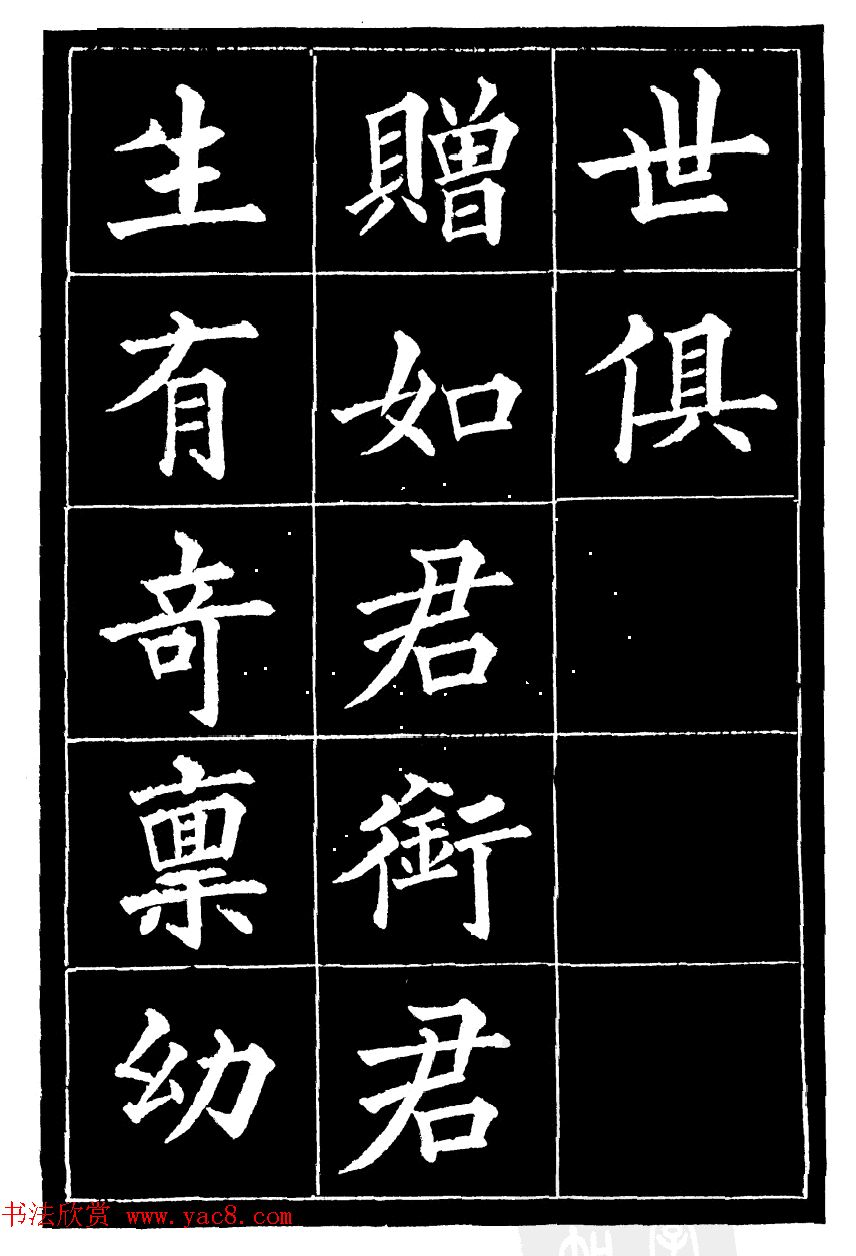 世俱
贈如君銜君
生有奇禀幼
书法欣赏 www.yac8.com